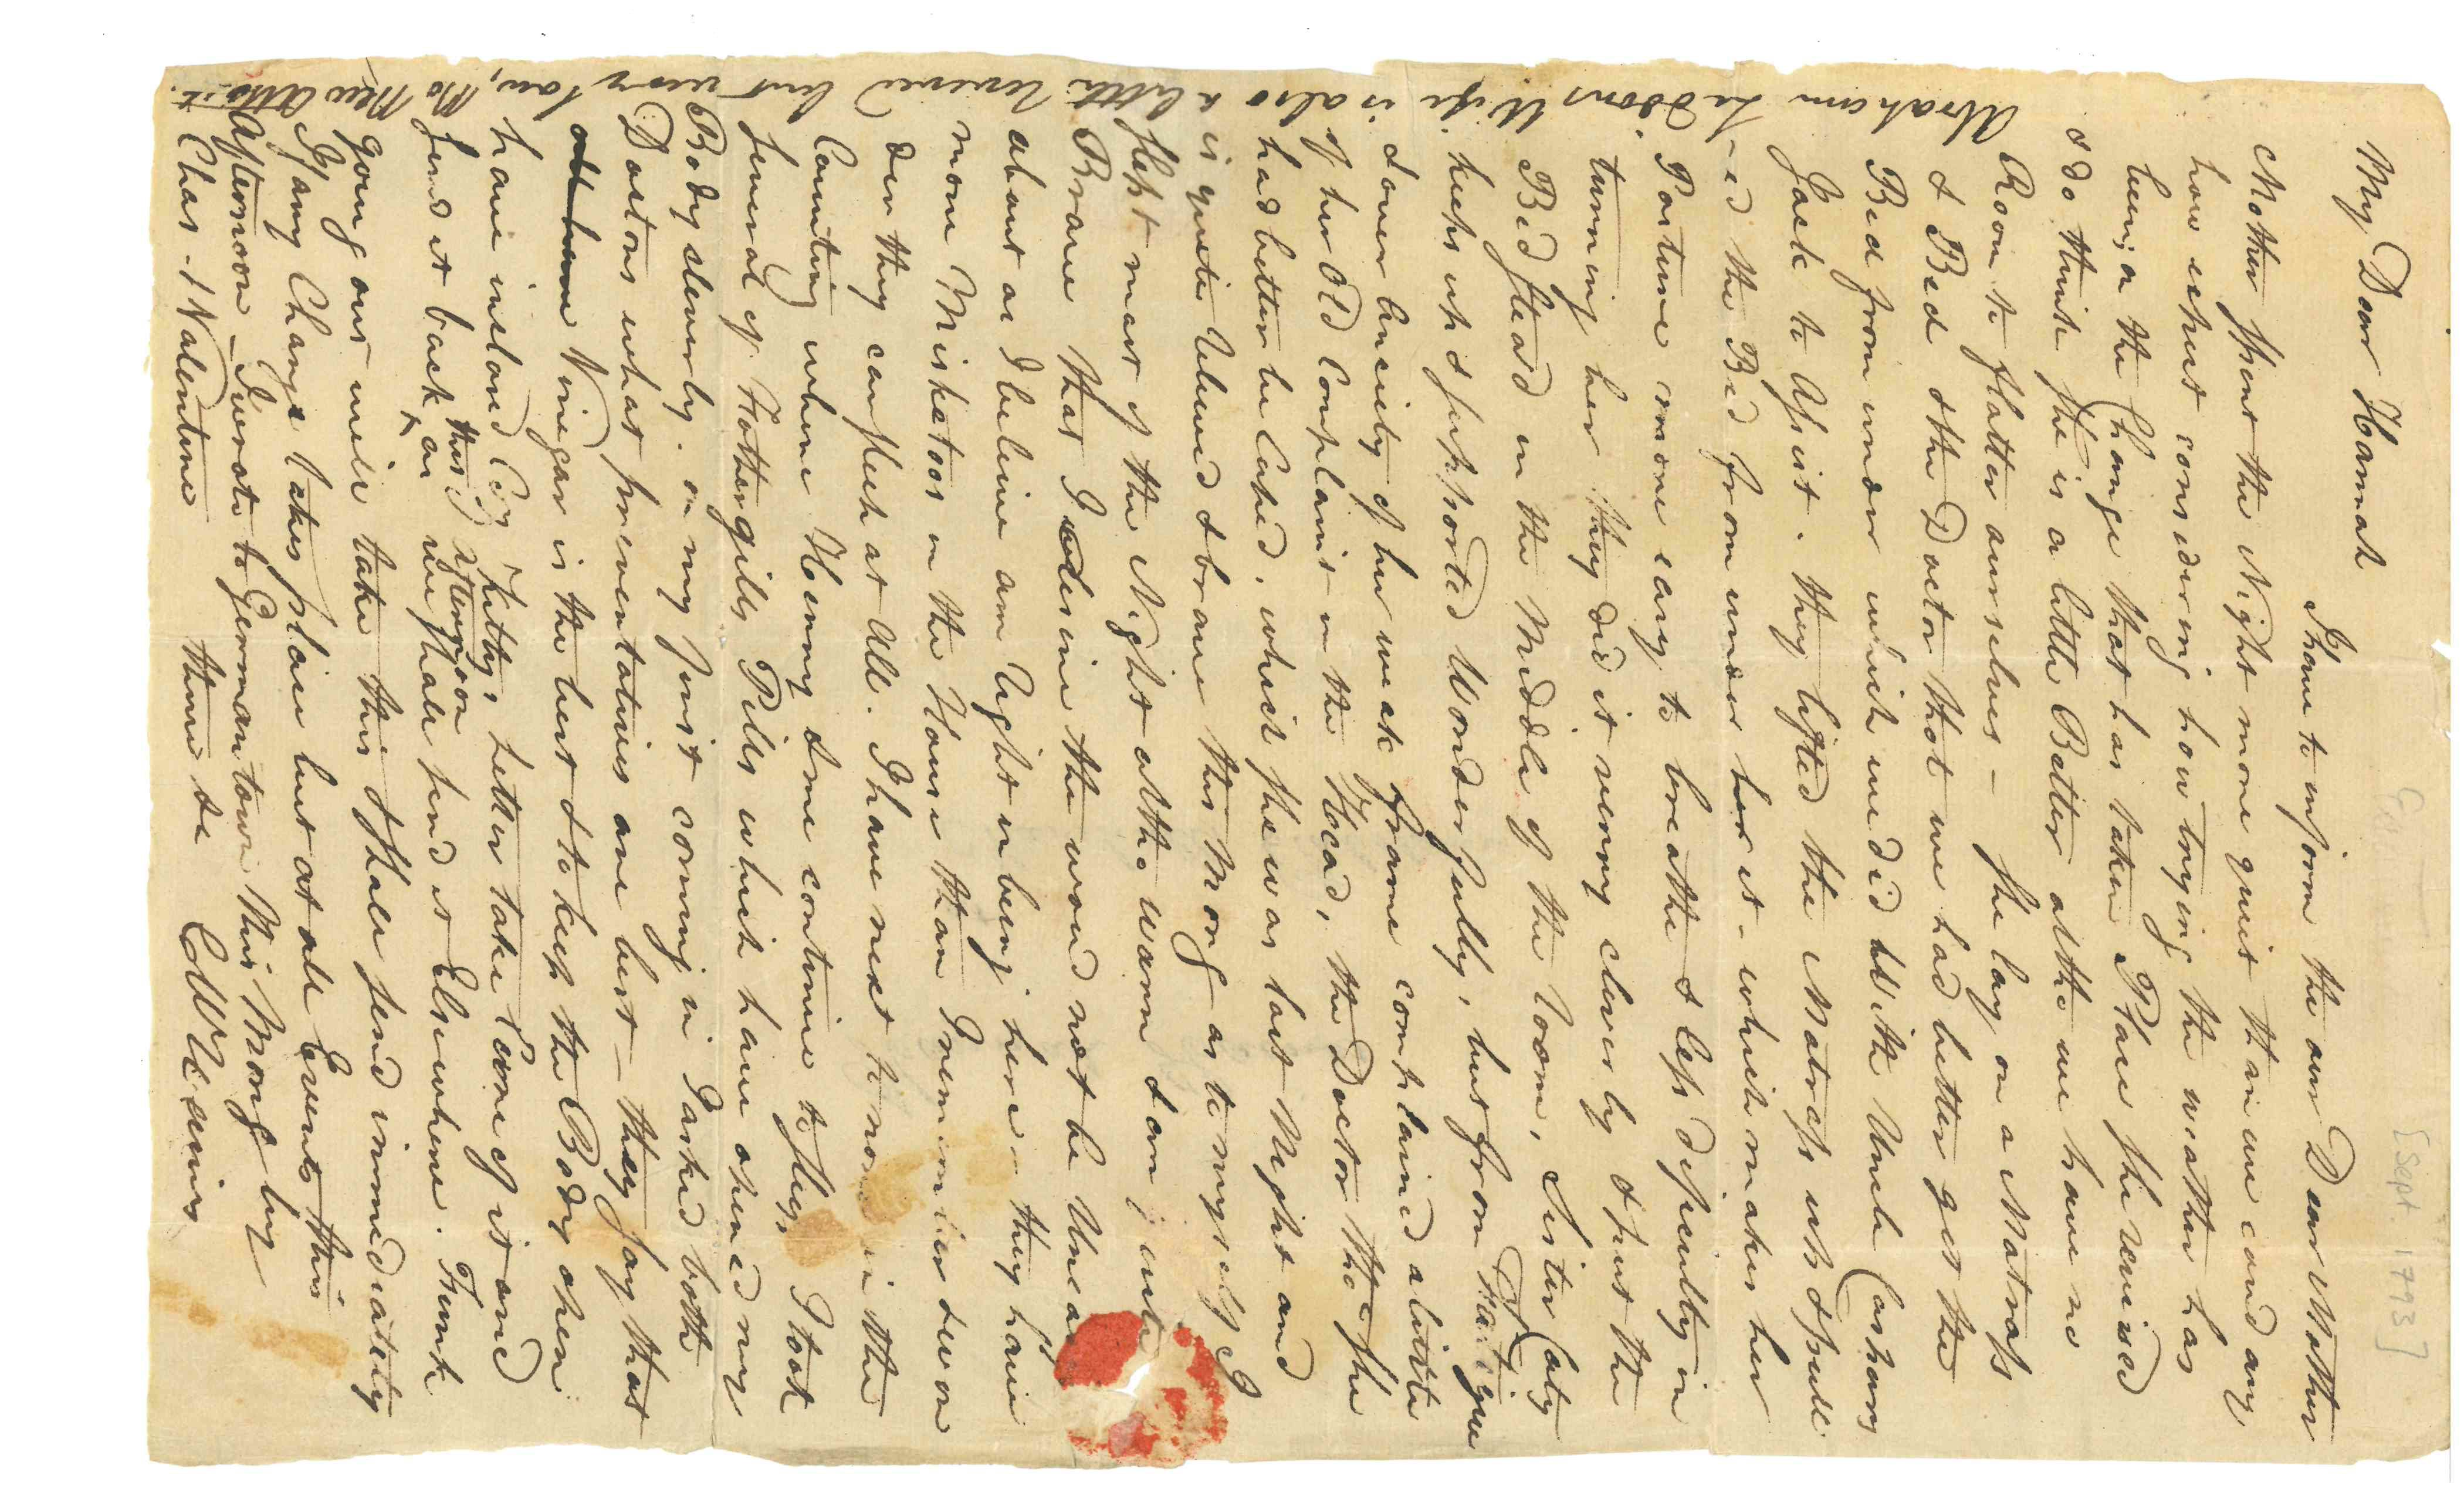 [Sept. 1793]
My Dear Hannah
I have to inform the our Dear Mother
Mother spent the Night more quiet than we coud any
how expect considering how trying the weather has
been; on the Change that has taken Place she revived
& do think she is a little Better altho we have no
Room to flatter ourselves - she lay on a Matrass
& Bed & the Doctor thot we had better get the
Bed from under which we did With Uncle Caspars
Jack to Assist. they lifted the Matrass up & pull
-ed the Bed from under her it - which makes her
Posture more easy to breathe & less dificulty in
turning her they did it verry cleverly & put the
Bedstead in the Middle of the room, Sister Caty
keeps up & supported Wonderfully, but from Fatigue
& over Anxiety of her weak frame complained a little
of her Old Complaint in the Head, the Doctor tho.t she
had better be Cuped. which she was last Night and
is quite releived & brave this Mong as to myself I
slept most of the Night altho warm & am quite
Brave that I desire the woud not be Uneasy
about as I beleive am right in being here - they have
more Misketoos in the House than I remember & won
der they can sleep at All. I have next to none in the
Counting where Henry & me continue to sleep, I took
several of Fothergills Pills which have opened my
Body cleverly. on my first coming in I asked both
Doctors what preventatives are best - they say that
all have Vinegar is the best & to keep the Body open
have inclosed Coz Kittys letter take Care of it and
send it back this afternoon as we shall send it Elsewhere. Funk
going out will take this & shall send immediately
If any Change takes place but at all Events this
Afternoon - I wrote to Germantown this Mong by
Chas. Valentine thine &c CWHaines
Abraham Liddons Wife is also a little revived but very low, No New Atta.t.